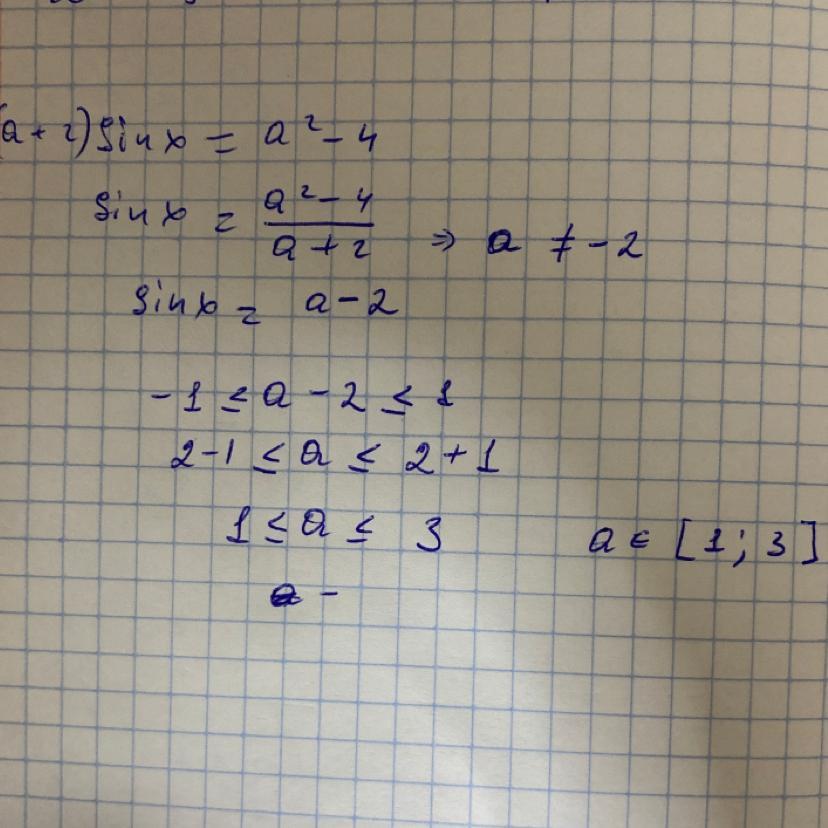 (a + 2) sin x = a² - 4
sin x = (a² - 4)/(a + 2) ⇒ a ≠ -2
sin x = a - 2
-1 ≤ a - 2 ≤ 1
2-1 ≤ a ≤ 2 + 1
1 ≤ a ≤ 3 a ∈ [1; 3]
a -